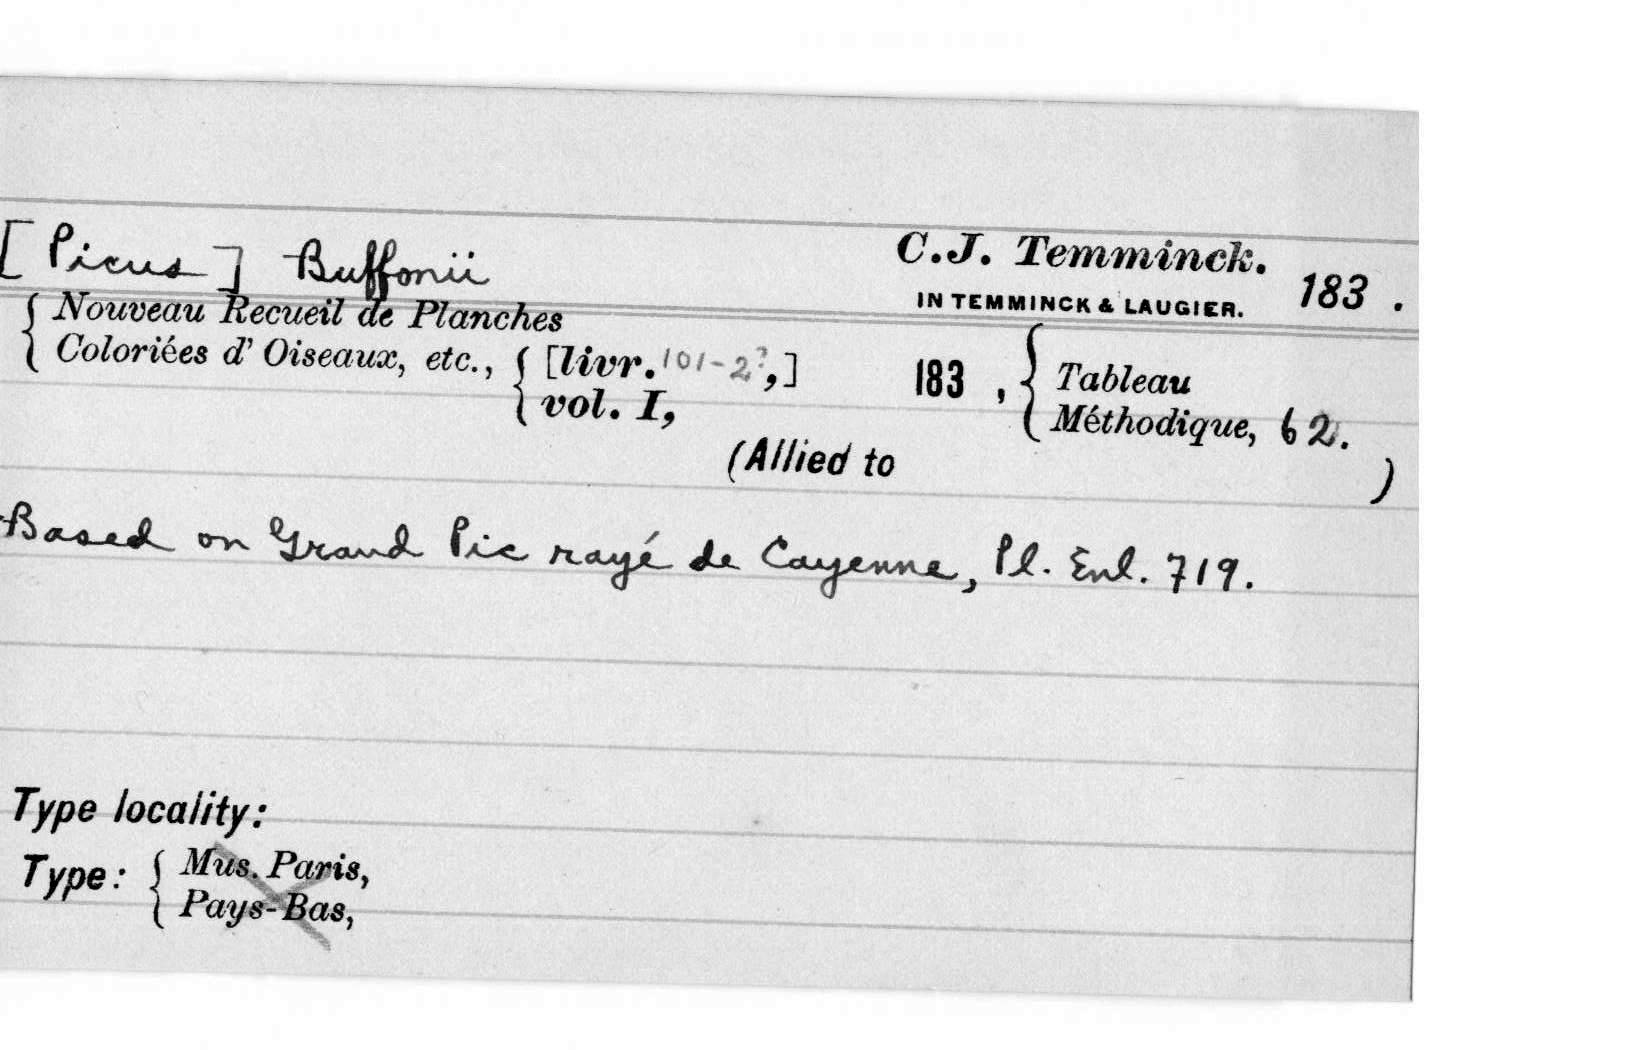 [Picus] Buffonii C.J. Temminck.
IN TEMMINCK & LAUGIER. 183 .
{ Nouveau Recueil de Planches
Coloriées d' Oiseaux, etc., { [livr. 101-2?,] 183 , { Tableau
vol. I, Méthodique, 62.
(Allied to )
Based on Grand Pic rayé de Cayenne, Pl. Enl. 719.
Type locality:
Type: { Mus. Paris,
Pays-Bas,